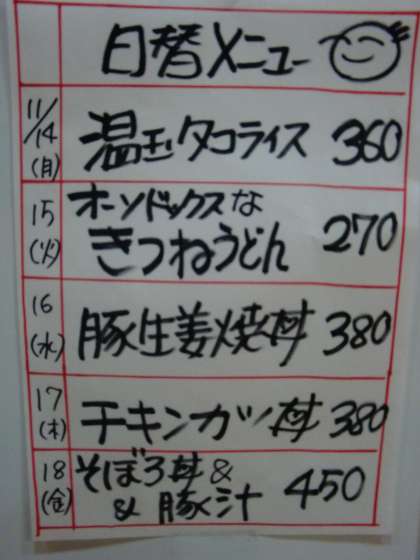 日替メニュー
11/14(月) 温玉タコライス 360
15(火) オーソドックスな
きつねうどん 270
16(水) 豚生姜焼丼 380
17(木) チキンカツ丼 380
18(金) そぼろ丼&
& 豚汁 450